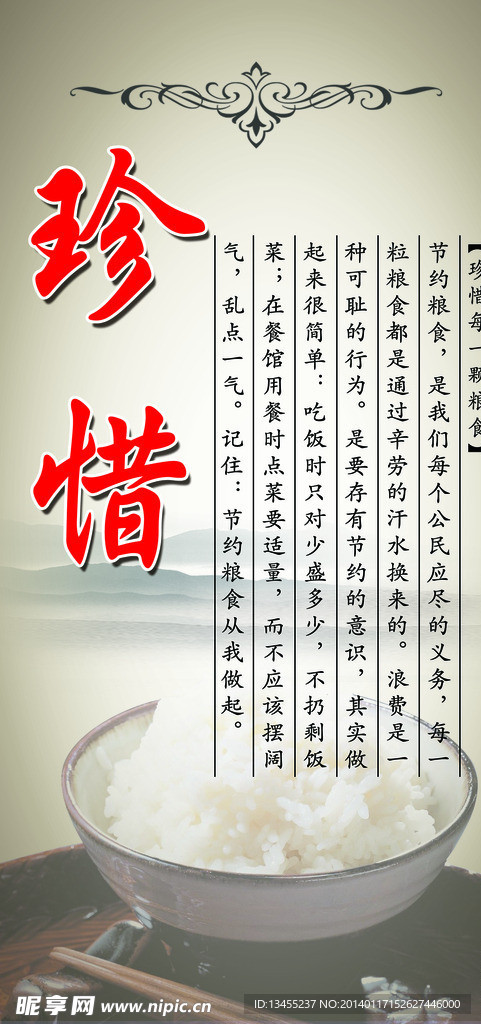 珍惜
【珍惜每一颗粮食】
节约粮食，是我们每个公民应尽的义务，每一
粒粮食都是通过辛劳的汗水换来的。浪费是一
种可耻的行为。是要存有节约的意识，其实做
起来很简单：吃饭时只对少盛多少，不扔剩饭
菜；在餐馆用餐时点菜要适量，而不应该摆阔
气，乱点一气。记住：节约粮食从我做起。
昵享网 www.nipic.cn
ID:13455237 NO:20140117152627446000